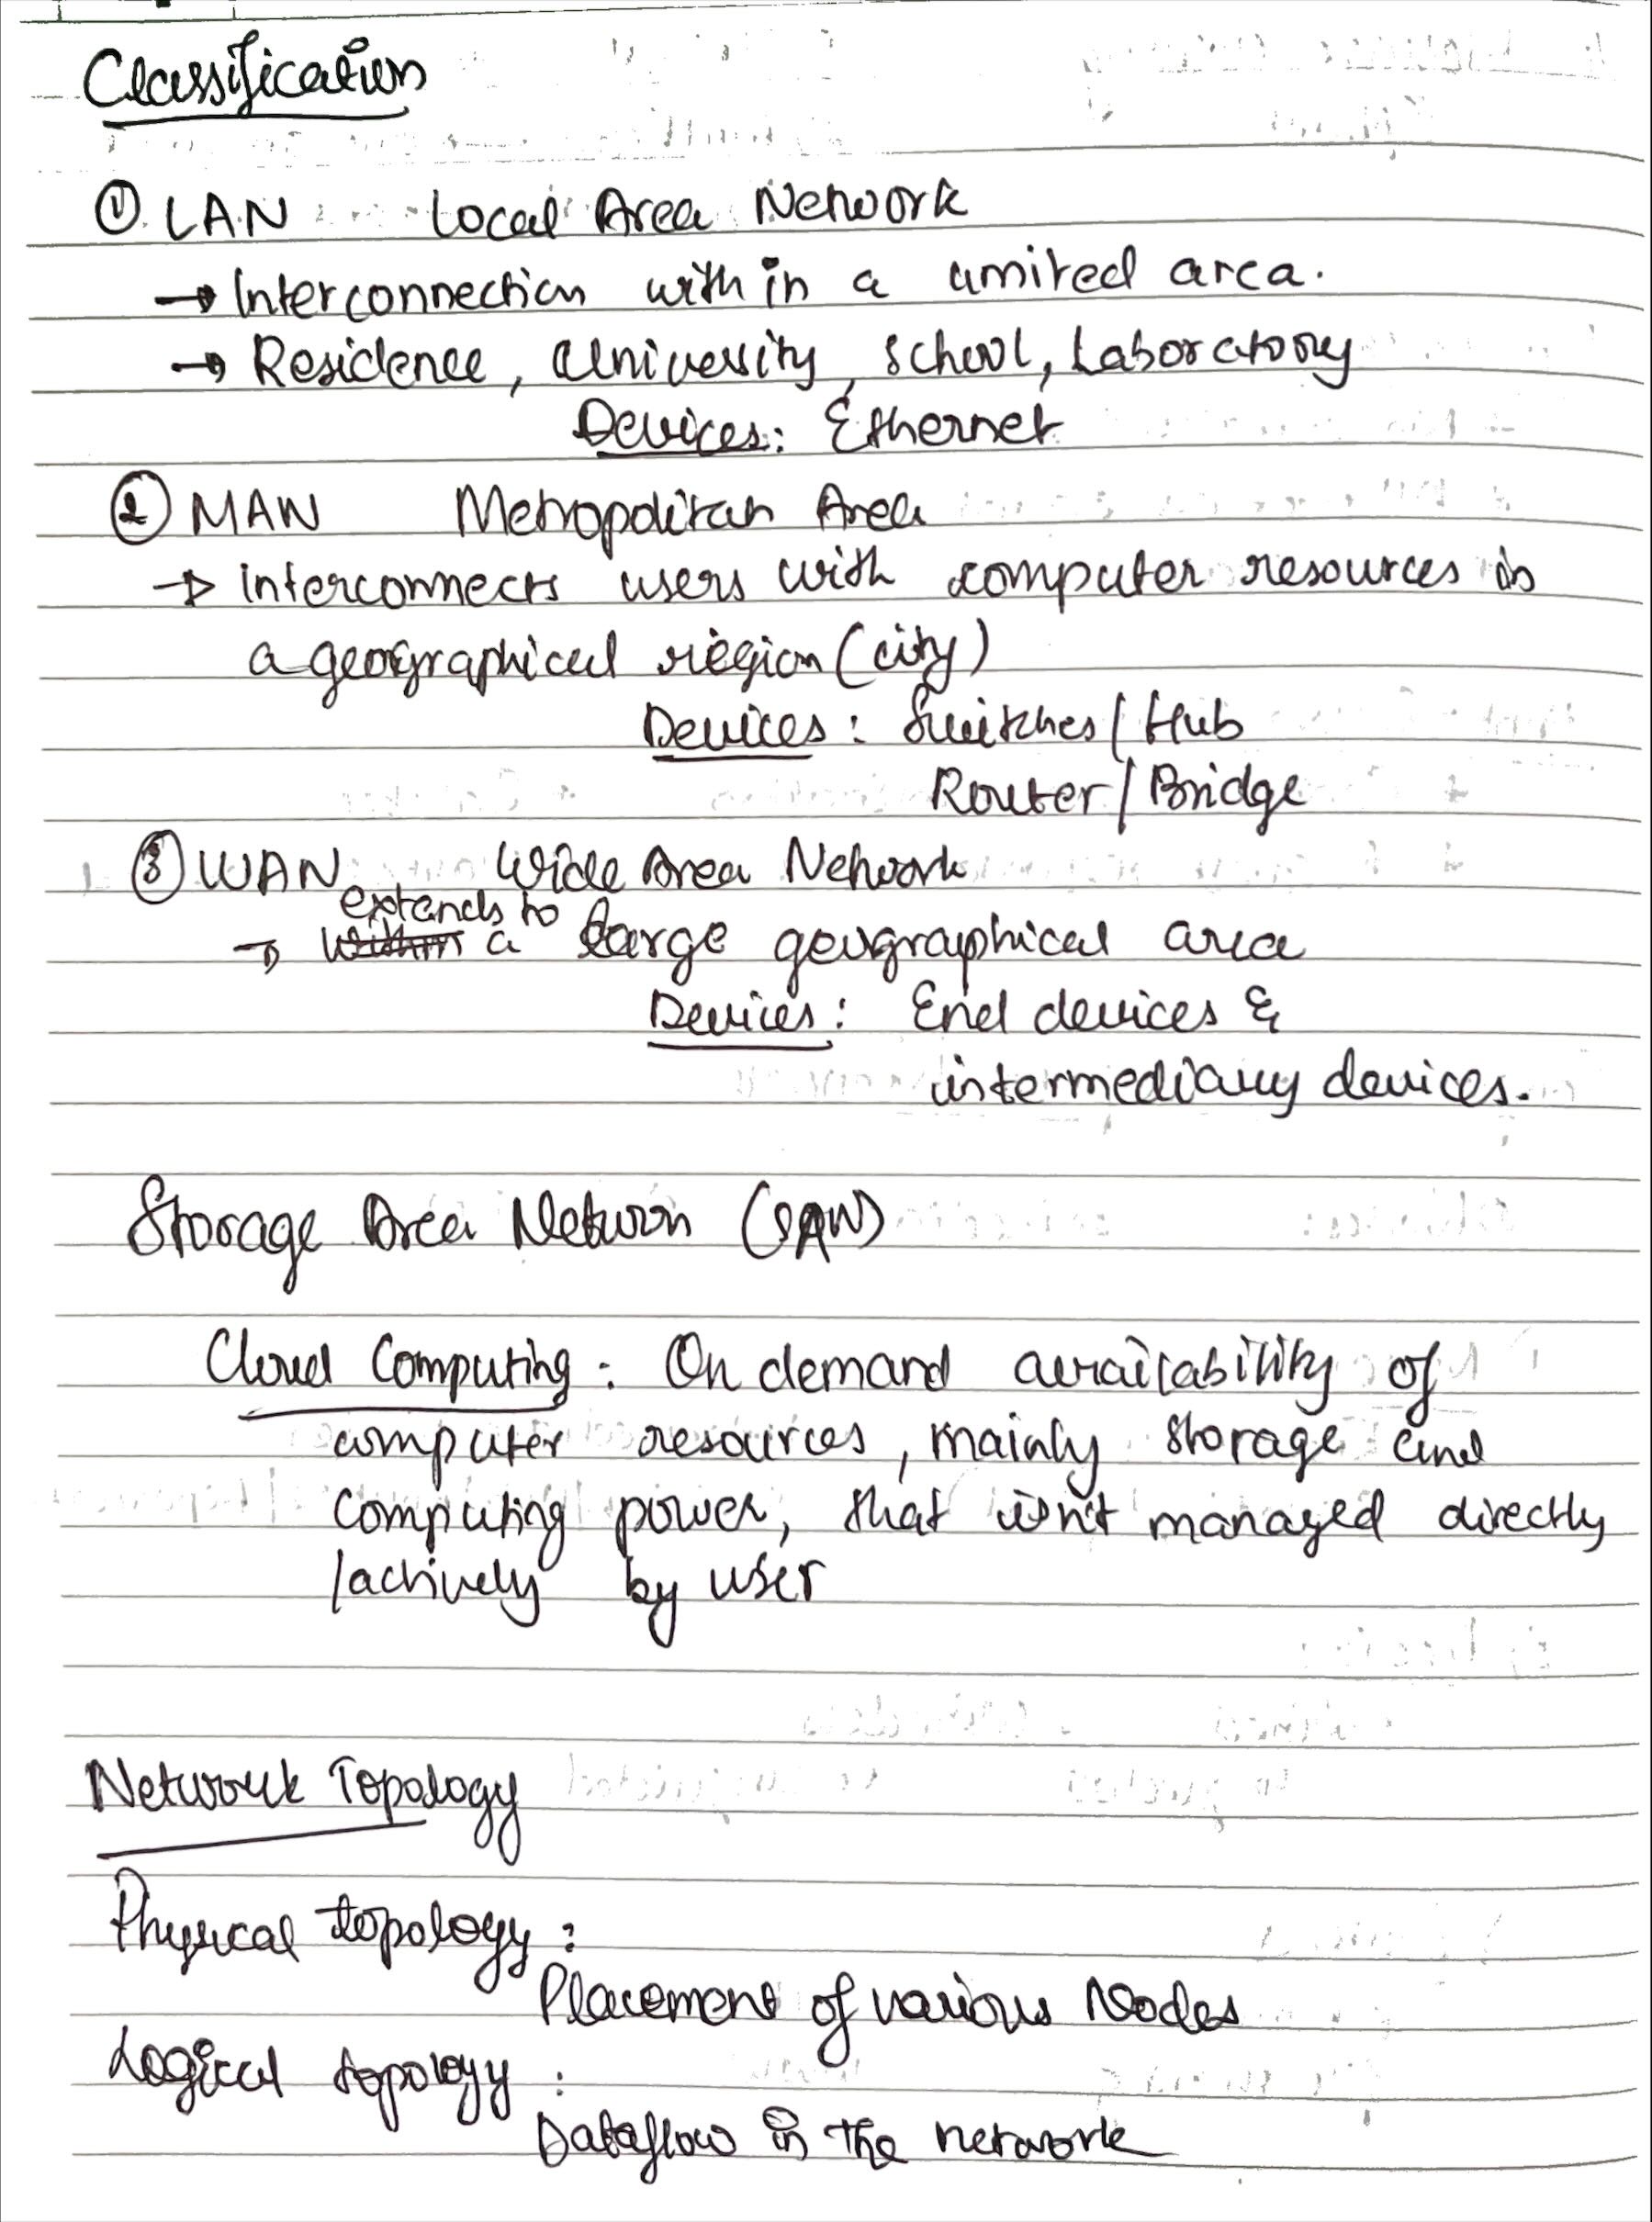 Classification
① LAN Local Area Network
→ Interconnection with in a limited area.
→ Residence, University, School, Laboratory
Devices: Ethernet
② MAN Metropolitan Area
→ interconnects users with computer resources in
a geographical region (city)
Devices: Switches / Hub
Router / Bridge
③ WAN Wide Area Network
extends to
→ Within a large geographical area
Devices: End devices &
intermediary devices.
Storage Area Networn (SAN)
Cloud Computing: On demand availability of
computer resources, mainly storage and
computing power, that isn't managed directly
/actively by user
Network Topology
Physical topology:
Placement of various Nodes
Logical topology:
Dataflow in the network